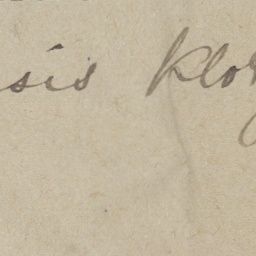 sis klor